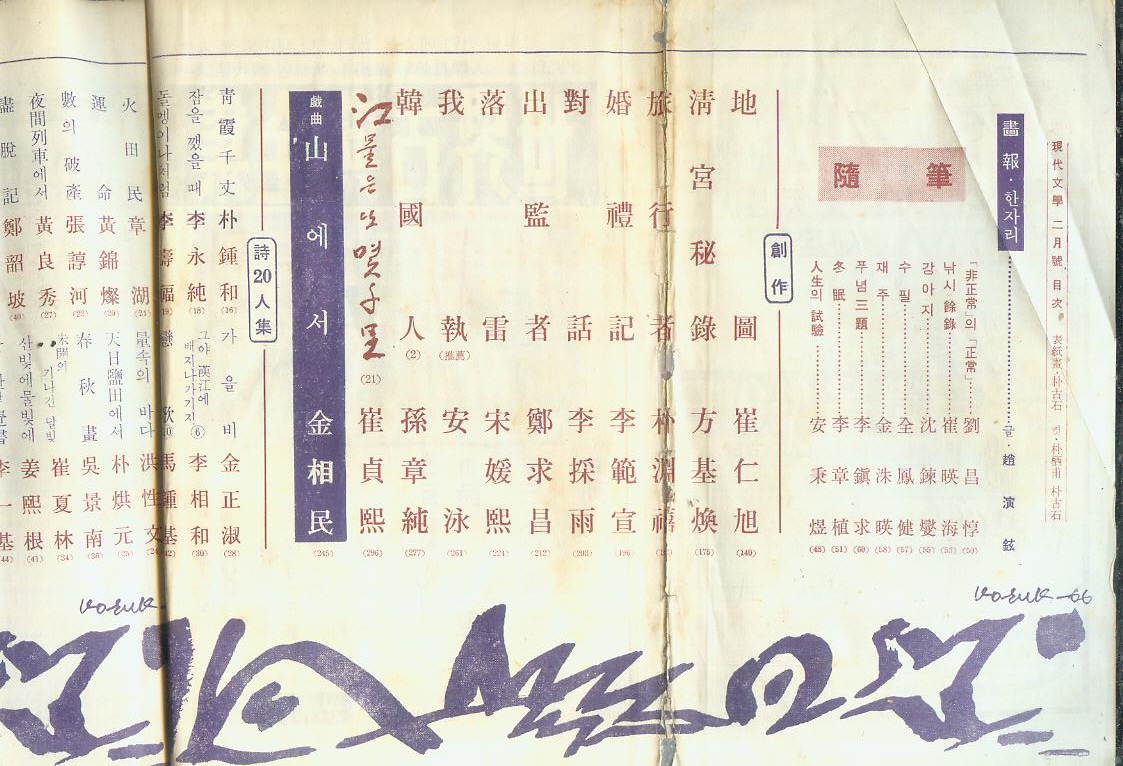 現代文學 二月號 目次
表紙畫·朴古石 컷·朴栖甫 朴古石
畫報·한자리 글·趙演鉉
隨筆
「非正常」의「正常」 劉昌惇 (50)
낚시餘錄 崔暎海 (53)
강아지 沈鍊燮 (55)
수필 全鳳健 (57)
재주 金洙暎 (58)
푸념三題 李鎭求 (60)
冬眠 李章植 (51)
人生의試驗 安秉煜 (48)
創作
地圖 崔仁旭 (140)
淸宮秘錄 方基煥 (175)
旅行者 朴淵禧
婚禮記 李範宣 (196)
對話 李採雨 (203)
出監者 鄭求昌 (212)
落雷 宋媛熙 (224)
我執 (推薦) 安泳 (261)
韓國人 (2) 孫章純 (277)
江물은또몇千里 (21) 崔貞熙 (296)
戱曲 山에서 金相民 (245)
詩20人集
靑霞千丈 朴鍾和 (16)
가을비 金正淑 (28)
잠을깼을때 李永純 (18)
그야 漢江에 배지나가기지 ⑥ 李相和 (30)
돌멩이나처럼 李壽福 (19)
戀歌⑩ 馬鍾基
火田民 章湖 (24)
量속의 바다 洪性文
運命 黃錦燦 (20)
天日鹽田에서 朴烘元 (25)
數의破產 張諄河 (22)
春秋畫 吳景南 (36)
夜間列車에서 黃良秀 (27)
未開의 지나간 달빛 崔夏林 (34)
盡脫記 鄭韶坡 (40)
산빛에물빛에 姜熙根 (41)
李一基 (44)
KO.SUK-66
KO.SUK-